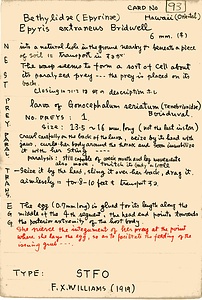 CARD NO 93
Bethylidae (Epyrinae) Hawaii (Oriental)
Epyris extraneus Bridwell
6 mm. (♀)
NEST
into a natural hole in the ground nearby & beneath a piece
of soil &
The wasp seems to form a sort of cell about
its paralyzed prey --- the prey is placed on its
back.
Closing
PREY
larva of Gonocephalum seriatum (Tenebrionidae)
Boisduval.
NO. PREYS: 1
SIZE: 13.5 ~ 16 mm. long (not the last instar)
PARAL.
Crawl carefully on the back of the larva, seize by its head with
jaws, curls her body around the and soon immobilize
it with her sting.
paralysis: still capable of weak mouth and leg movements
TRANS.
Seize it by the head, sling it over her back, drag it,
aimlessly
EGG
The egg (0.7mm long) is glued for its length along the
middle of the 4th segment, the head end points towards
the posterior extremity of the host body.
She pierces the integument of her prey at the point
where she lays the egg, so as to facilitate the feeding of the
issuing grub ---.
TYPE: STFO
F.X. WILLIAMS (1919)